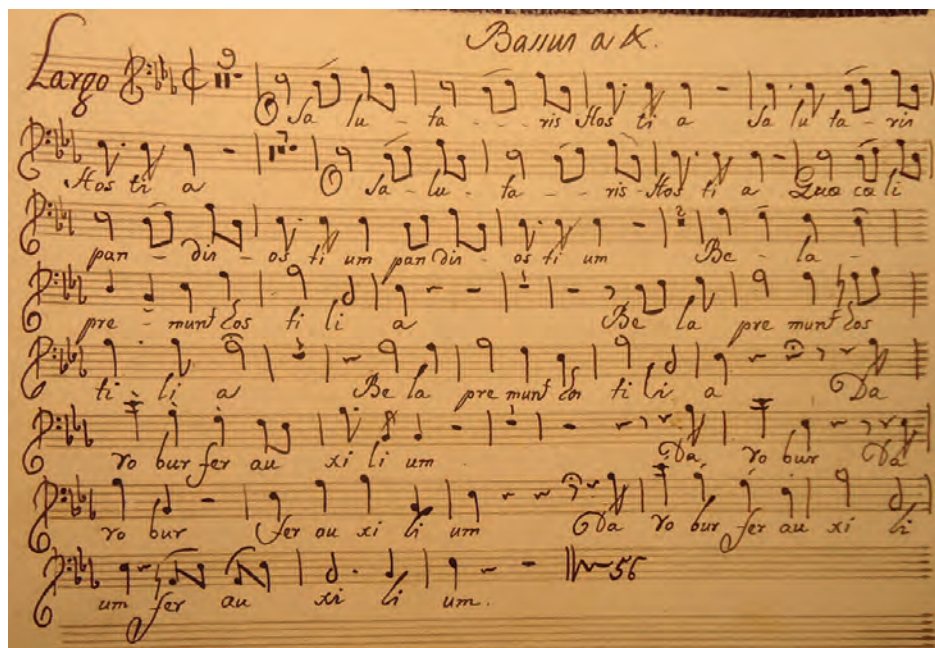 Bassus a 4.
Largo 9
O Sa lu - ta - - - ris Hos ti a Sa lu ta - ris
7
Hos ti a O Sa - lu - ta - - - ris - Hos ti a Quae coe li
2
pan - dis - os ti um pan dis - os ti um Be - la -
pre - munt hos ti li a Be la pre munt hos
ti - li a Be la pre munt hos ti li a Da
ro bur fer au xi li um Da ro bur Da
ro bur fer au xi li um Da ro bur fer au xi li
um fer au xi li um. 56